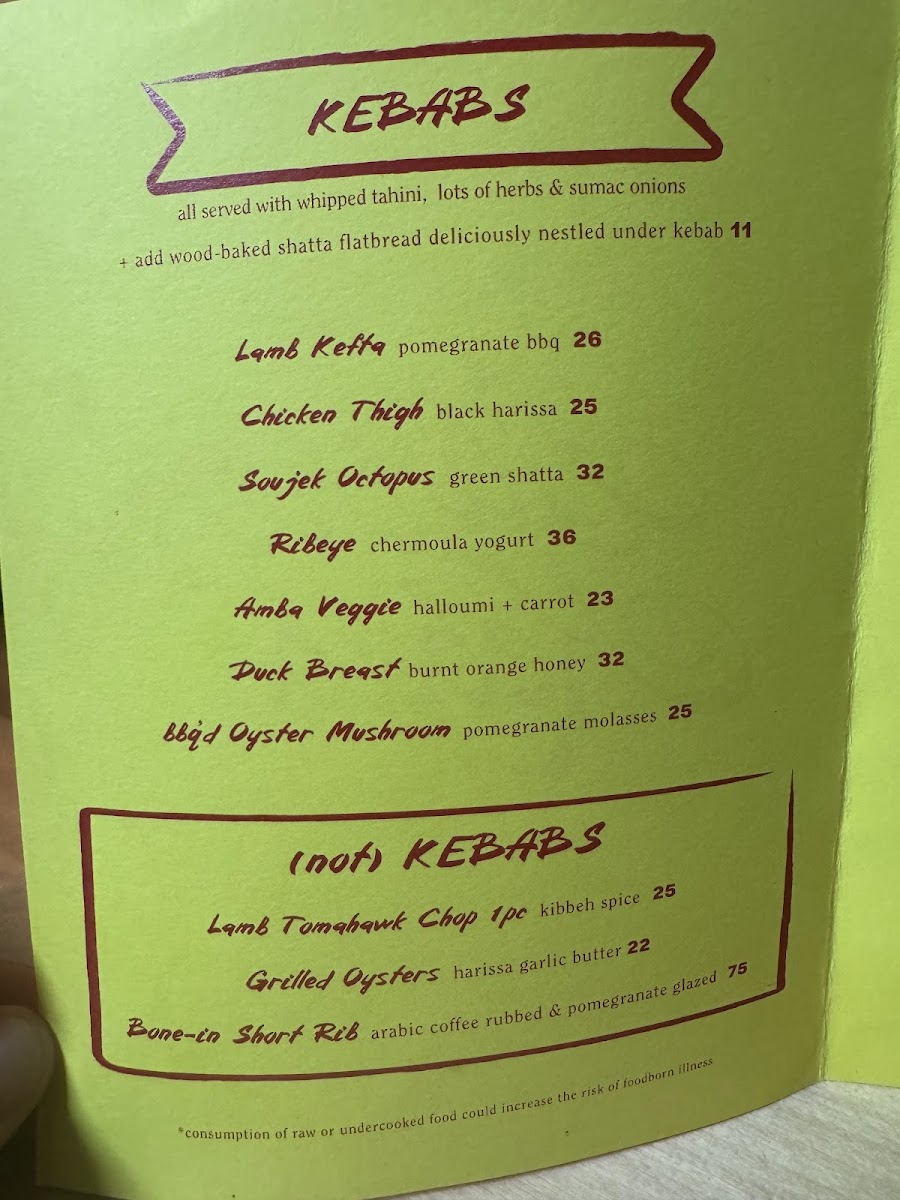 KEBABS
all served with whipped tahini, lots of herbs & sumac onions
+ add wood-baked shatta flatbread deliciously nestled under kebab 11
Lamb Kefta pomegranate bbq 26
Chicken Thigh black harissa 25
Soujek Octopus green shatta 32
Ribeye chermoula yogurt 36
Amba Veggie halloumi + carrot 23
Duck Breast burnt orange honey 32
bbq'd Oyster Mushroom pomegranate molasses 25
(not) KEBABS
Lamb Tomahawk Chop 1pc kibbeh spice 25
Grilled Oysters harissa garlic butter 22
Bone-in Short Rib arabic coffee rubbed & pomegranate glazed 75
*consumption of raw or undercooked food could increase the risk of foodborn illness